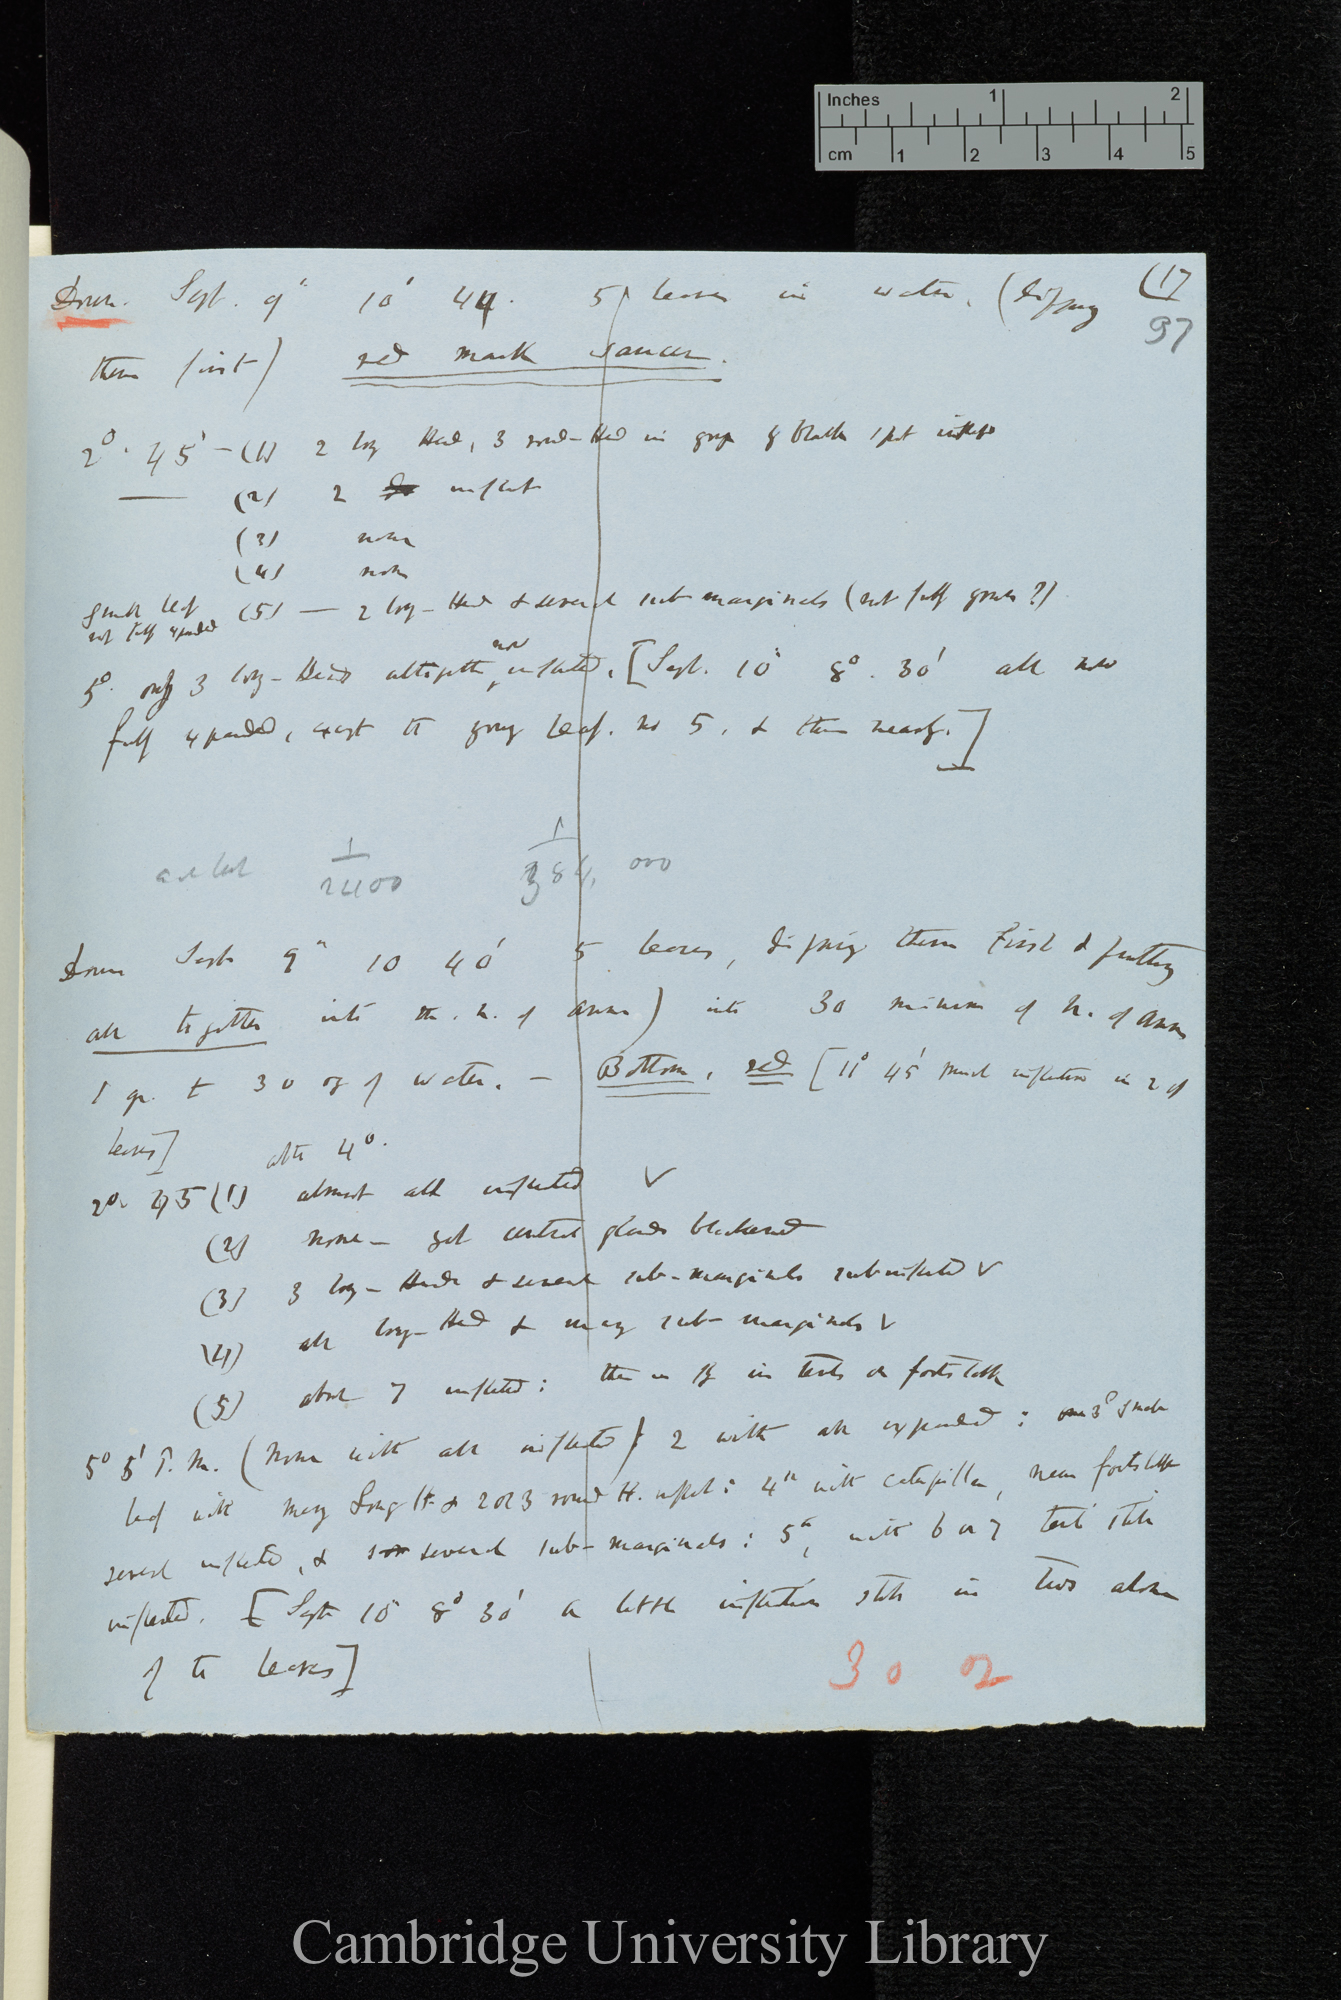 Inches 1 2
cm 1 2 3 4 5
(17
97
Down. Sept. 9" 10° 44. 5 leaves in water, (dipping
them first) red mark saucer.
2°. 45' — (1) 2 long Head, 3 round-Head in group of black spot
(2) 2 inflect
(3) none
(4) none
Small leaf
not fully expanded
(5) — 2 long-Head & several sub-marginals (not fully grown?)
5°. only 3 long-Heads altogether now inflected. [Sept. 10" 8°. 30' all now
fully expanded, except the young leaf. no 5, & then nearly.]
1/2400 1/384,000
Down Sept 9" 10 40' 5 leaves, dipping them first & putting
all together into the n. of amm) into 30 minims of N. of Amm
1 gr. to 30 oz of water. — Bottom, red [11° 45' much inflection in 2 of
leaves] after 4°.
2°. 45 (1) almost all inflected ✓
(2) none — yet central glands blackened
(3) 3 long-Heads & several sub-marginals subinflected ✓
(4) all long-Head & many sub-marginals ✓
(5) about 7 inflected:
5° 5' P.M. (None with all inflected): 2 with all expanded: 3d small
leaf with many Long H. & 2 or 3 round H. inflect: 4th with caterpillar, near footstalk
several inflected, & several sub-marginals: 5th, with 6 or 7 tent still
inflected. [Sept 10" 8° 30' a little inflection still in two alone
of the leaves]
302
Cambridge University Library